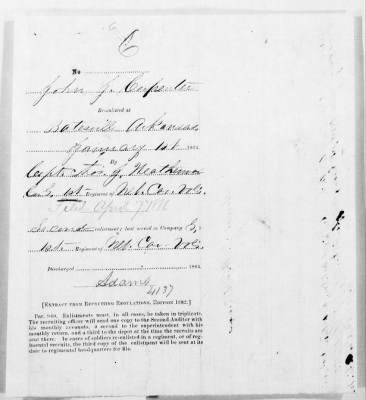 6
No
John J. Carpenter
Re-enlisted at
Batesville Arkansas
January 1st 186
By
Capt. Thos. J.
Co. G, 1st Regiment of Vols.
April
Second enlistment; last served in Company G,
1st Regiment of Cav Vols
Discharged , 186
Adams
4137
[EXTRACT FROM RECRUITING REGULATIONS, EDITION 1862.]
PAR. 949. Enlistments must, in all cases, be taken in triplicate.
The recruiting officer will send one copy to the Second Auditor with
his monthly accounts, a second to the superintendent with his
monthly return, and a third to the depot at the time the recruits are
sent there. In cases of soldiers re-enlisted in a regiment, or of regi-
mental recruits, the third copy of the enlistment will be sent at its
date to regimental headquarters for file.